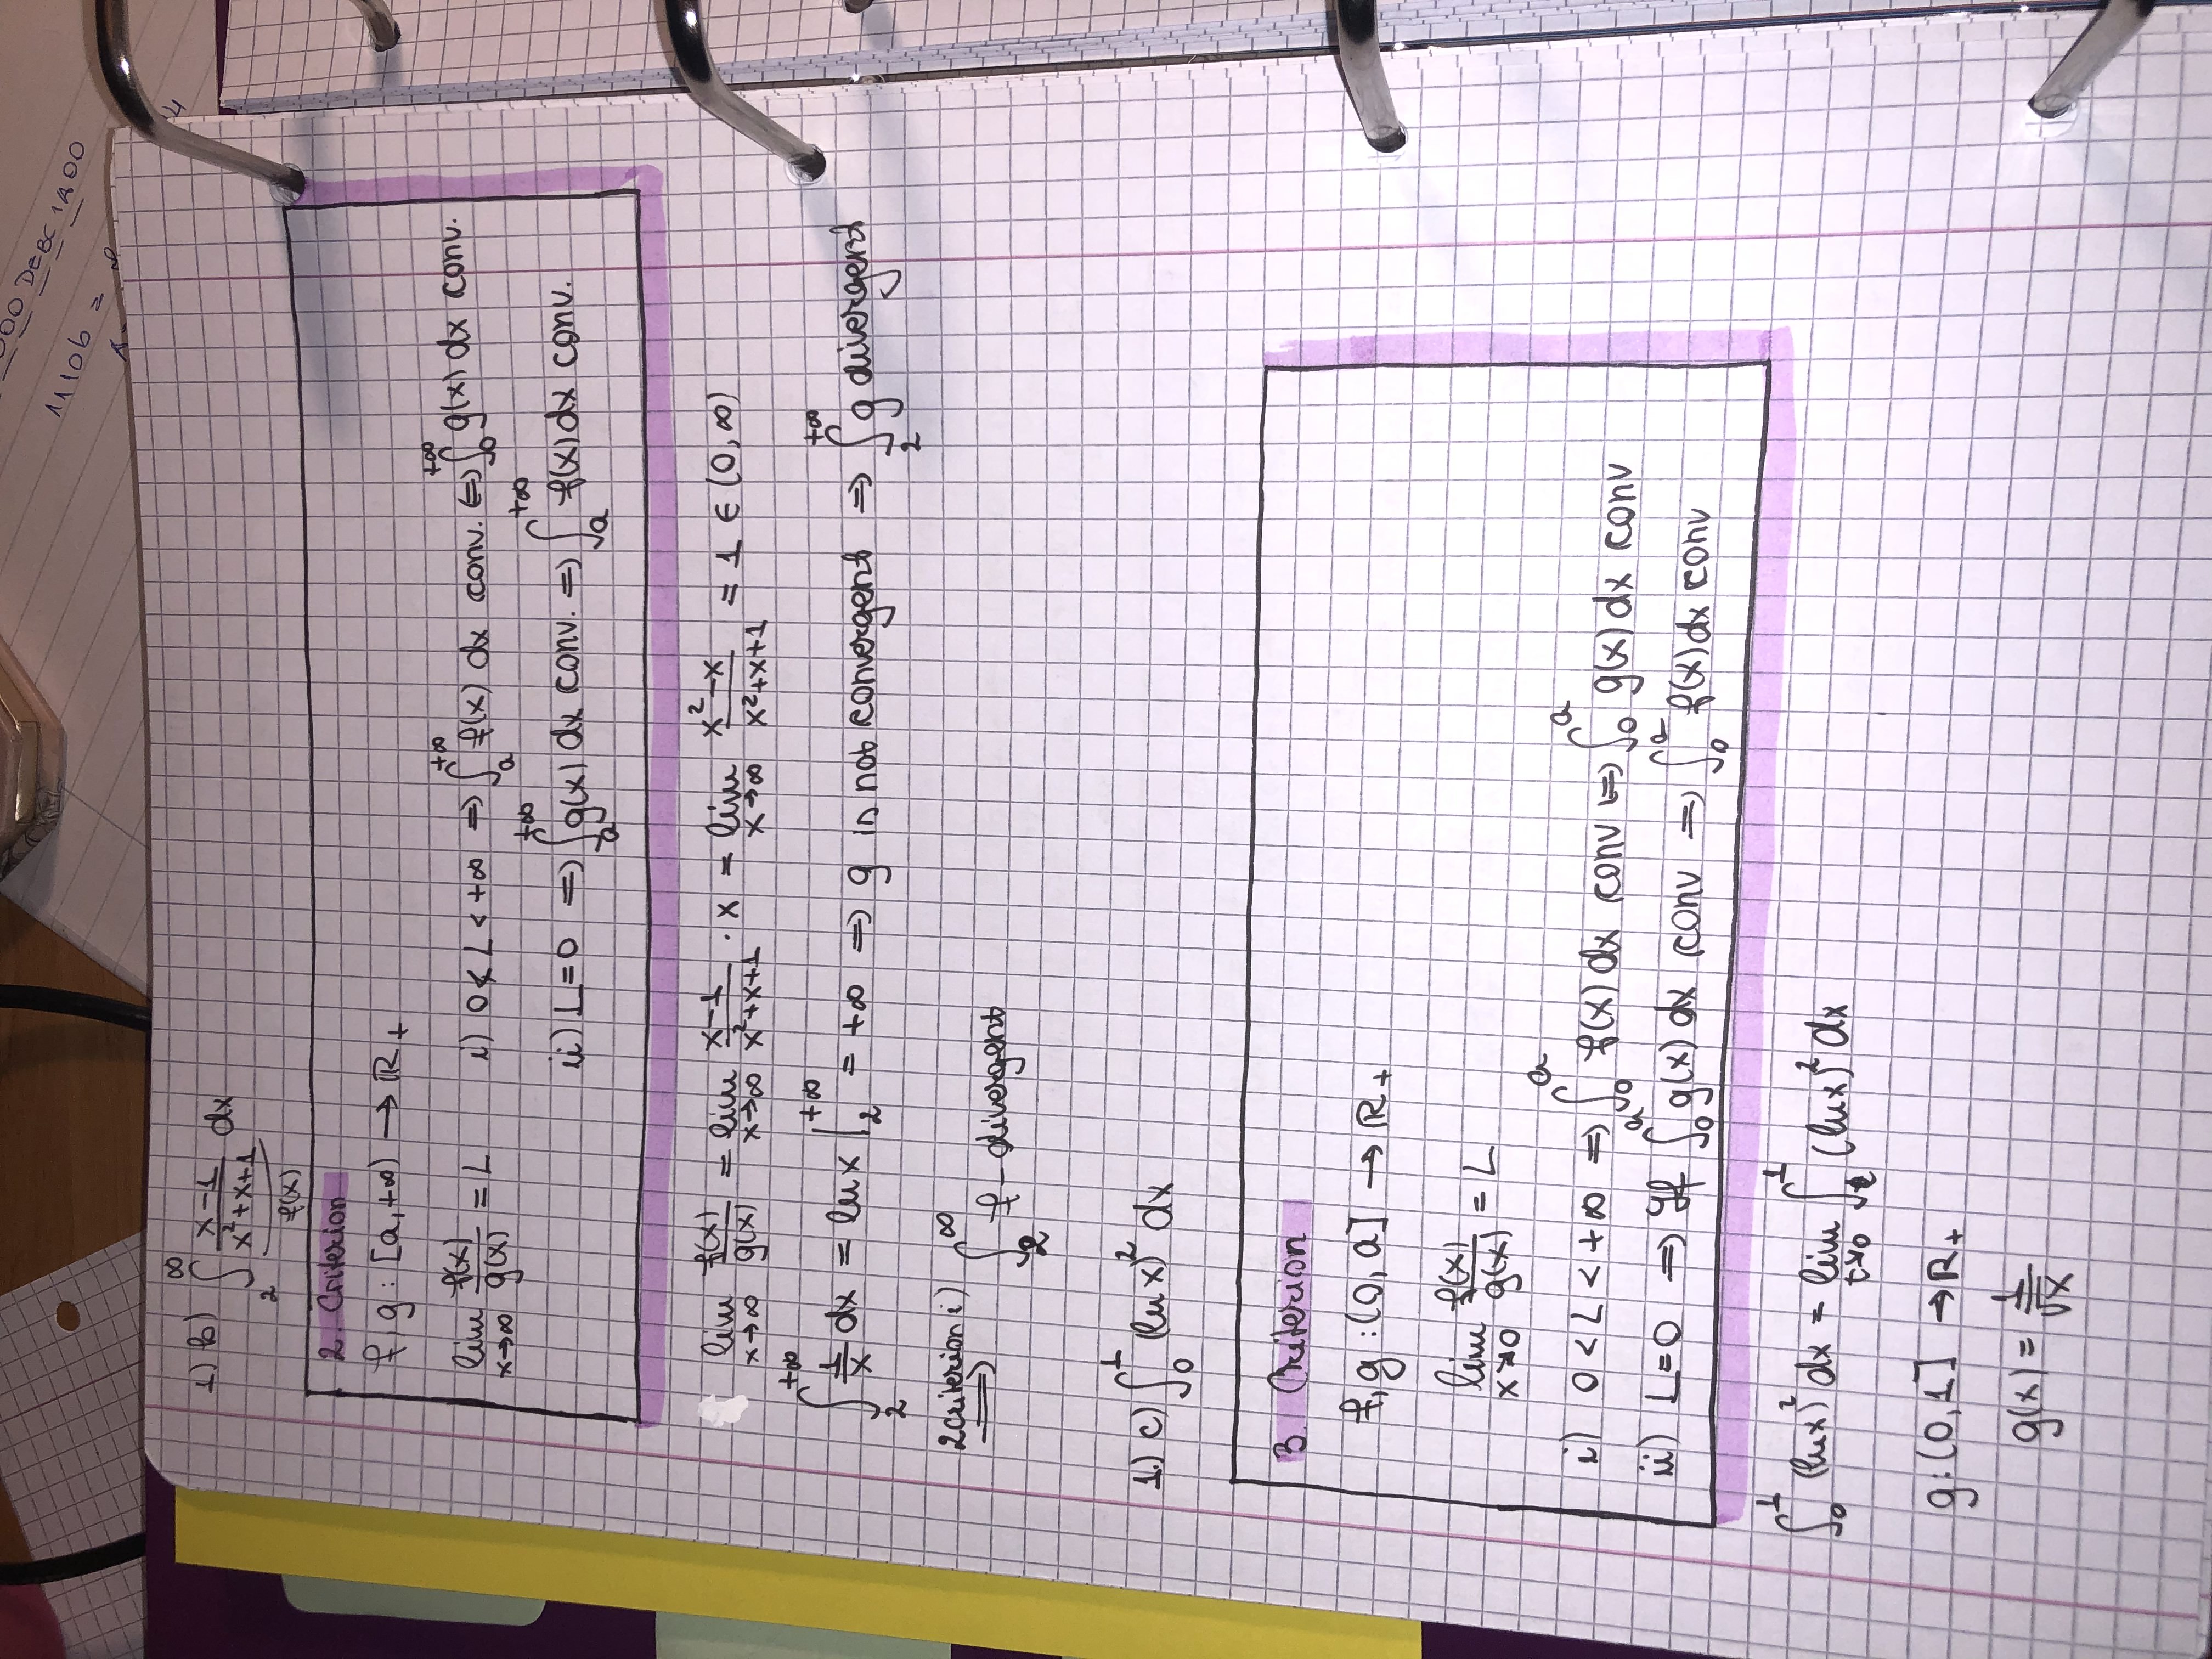 000 DEBC 1A00
1110b =
4
1) b) ∫₂^∞ (x-1)/(x²+x+1) dx
f(x)
2. Criterion
f, g : [a, +∞) → ℝ₊
lim_{x→∞} f(x)/g(x) = L i) 0 < L < +∞ ⇒ ∫_a^{+∞} f(x) dx conv. ⇔ ∫_0^{+∞} g(x) dx conv.
ii) L=0 ⇒ ∫_a^{+∞} g(x) dx conv. ⇒ ∫_a^{+∞} f(x) dx conv.
lim_{x→∞} f(x)/g(x) = lim_{x→∞} (x-1)/(x²+x+1) · x = lim_{x→∞} (x²-x)/(x²+x+1) = 1 ∈ (0, ∞)
∫₂^{+∞} 1/x dx = ln x |₂^{+∞} = +∞ ⇒ g is not convergent ⇒ ∫₂^{+∞} g divergent
2 criterion i) ⟹ ∫₂^∞ f - divergent
1.) c) ∫₀¹ (ln x)² dx
3. Criterion
f, g : (0, a] → ℝ₊
lim_{x↘0} f(x)/g(x) = L
i) 0 < L < +∞ ⇒ ∫₀^a f(x) dx conv ⇔ ∫₀^a g(x) dx conv
ii) L=0 ⇒ If ∫₀^a g(x) dx conv ⇒ ∫₀^a f(x) dx conv
∫₀¹ (ln x)² dx = lim_{t↘0} ∫_t¹ (ln x)² dx
g : (0, 1] → ℝ₊
g(x) = 1/√x